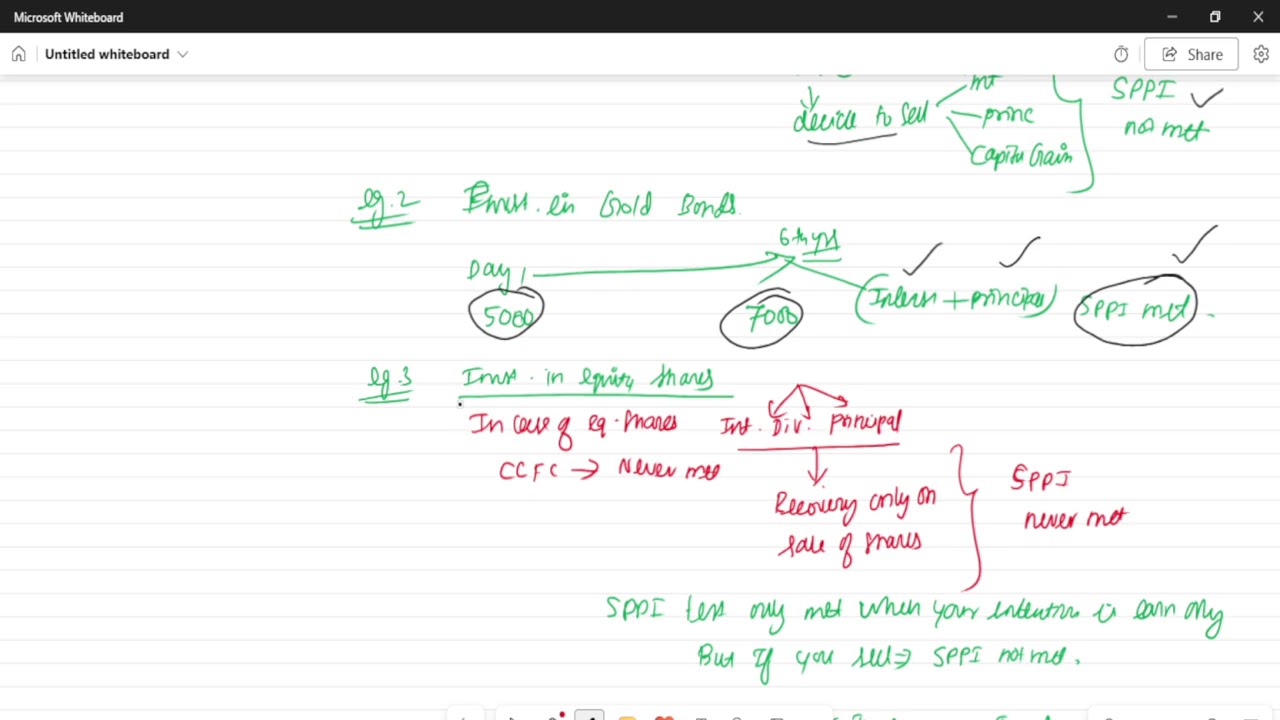 Microsoft Whiteboard
Untitled whiteboard
Share
int
decide to sell
princ
Capital Gain
SPPI
not met
eg.2 Invst. in Gold Bonds.
6th yrs
Day 1
5000 7000 (Interest + principal) SPPI met.
eg.3 Invst. in equity shares
In case of eq. shares Int. Div. Principal
CCFC → Never met
Recovery only on
sale of shares
SPPI
never met
SPPI test only met when your intention is earn only
But if you sell ⇒ SPPI not met.